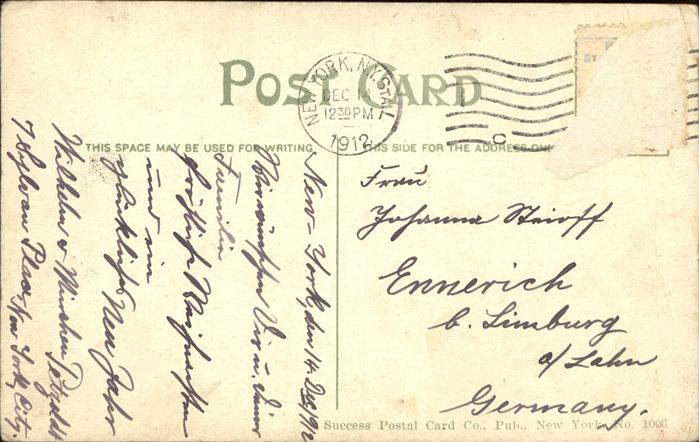 POST CARD
NEW YORK, N.Y. STA.
DEC 14
12 30 PM
1912
C
THIS SPACE MAY BE USED FOR WRITING
THIS SIDE FOR THE ADDRESS ONLY
New-York, den 14. Dec. 1912
Wir wünschen Dir u. Deiner
Familie
fröhliche Weihnachten
und ein
glückliches Neu Jahr
Wilhelm & Minchen
7 Sylvan Place New York City.
Frau
Johanna
Ennerich
b. Limburg
a/Lahn
Germany.
Success Postal Card Co., Pub., New York, No. 1006